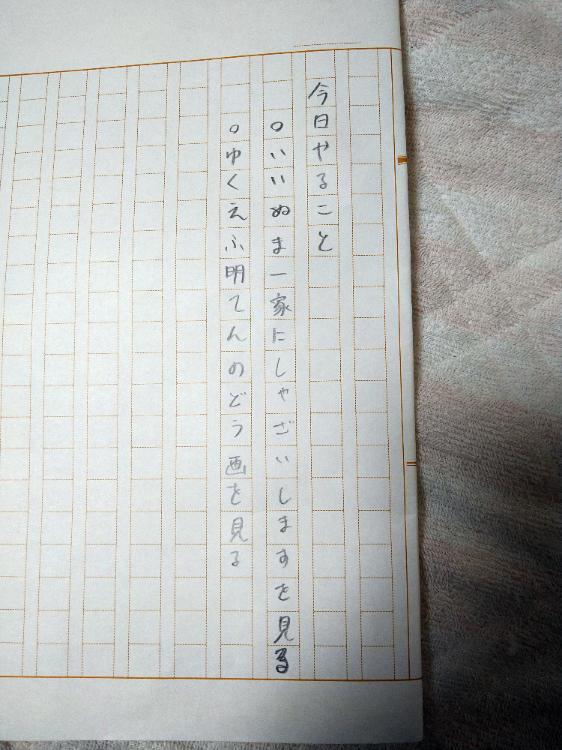 今日やること
○いいぬま一家にしゃざいしますを見る
○ゆくえふ明てんのどう画を見る